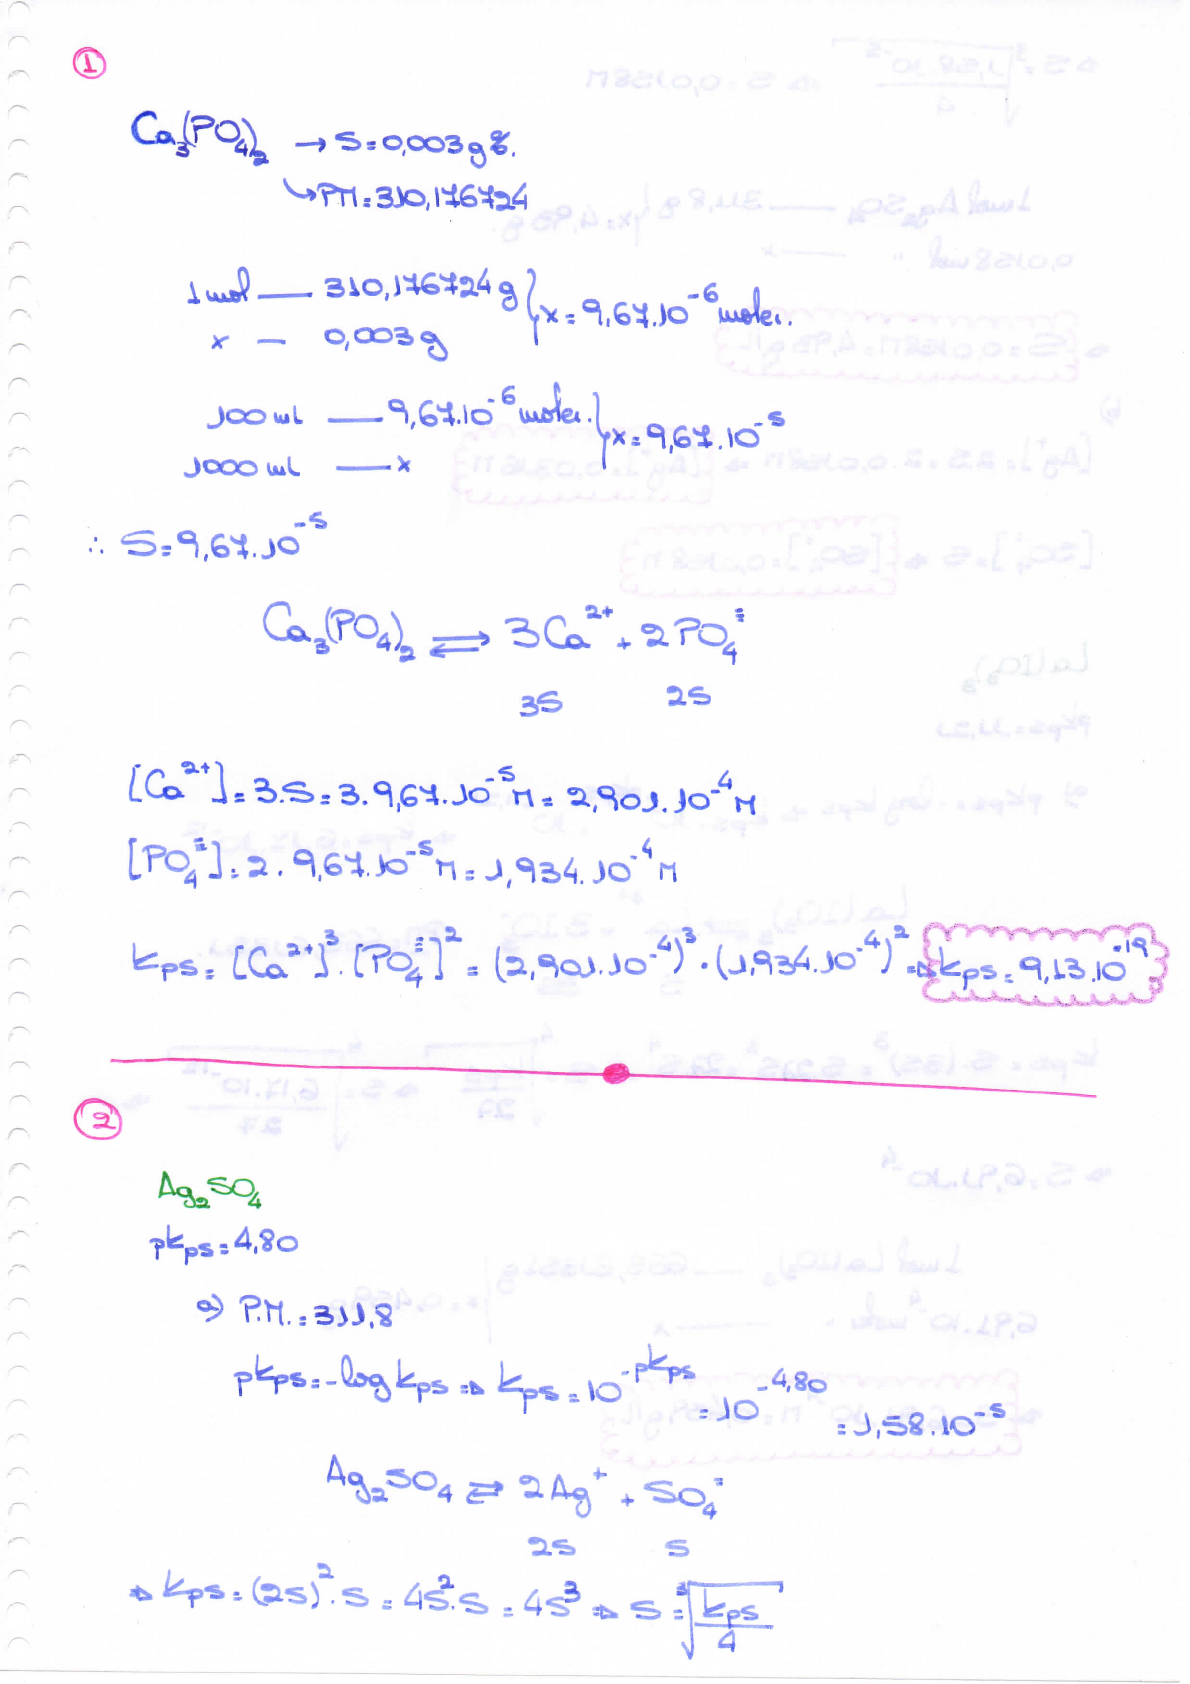 1
Ca₃(PO₄)₂ → S = 0,003 g%.
↳ PM = 310,176724
1 mol — 310,176724 g } x = 9,67.10⁻⁶ moles.
x — 0,003 g
100 ml — 9,67.10⁻⁶ moles. } x = 9,67.10⁻⁵
1000 ml — x
∴ S = 9,67.10⁻⁵
Ca₃(PO₄)₂ ⇌ 3Ca²⁺ + 2PO₄≡
3S 2S
[Ca²⁺] = 3.S = 3. 9,67.10⁻⁵ M = 2,901.10⁻⁴ M
[PO₄≡] = 2. 9,67.10⁻⁵ M = 1,934.10⁻⁴ M
kps = [Ca²⁺]³. [PO₄≡]² = (2,901.10⁻⁴)³ . (1,934.10⁻⁴)² ⇒ kps = 9,13.10⁻¹⁹
2
Ag₂SO₄
pkps = 4,80
a) P.M. = 311,8
pkps = -log kps ⇒ kps = 10^-pkps = 10^-4,80 = 1,58.10⁻⁵
Ag₂SO₄ ⇌ 2Ag⁺ + SO₄⁼
2S S
⇒ kps = (2S)². S = 4S². S = 4S³ ⇒ S = ³√(kps/4)